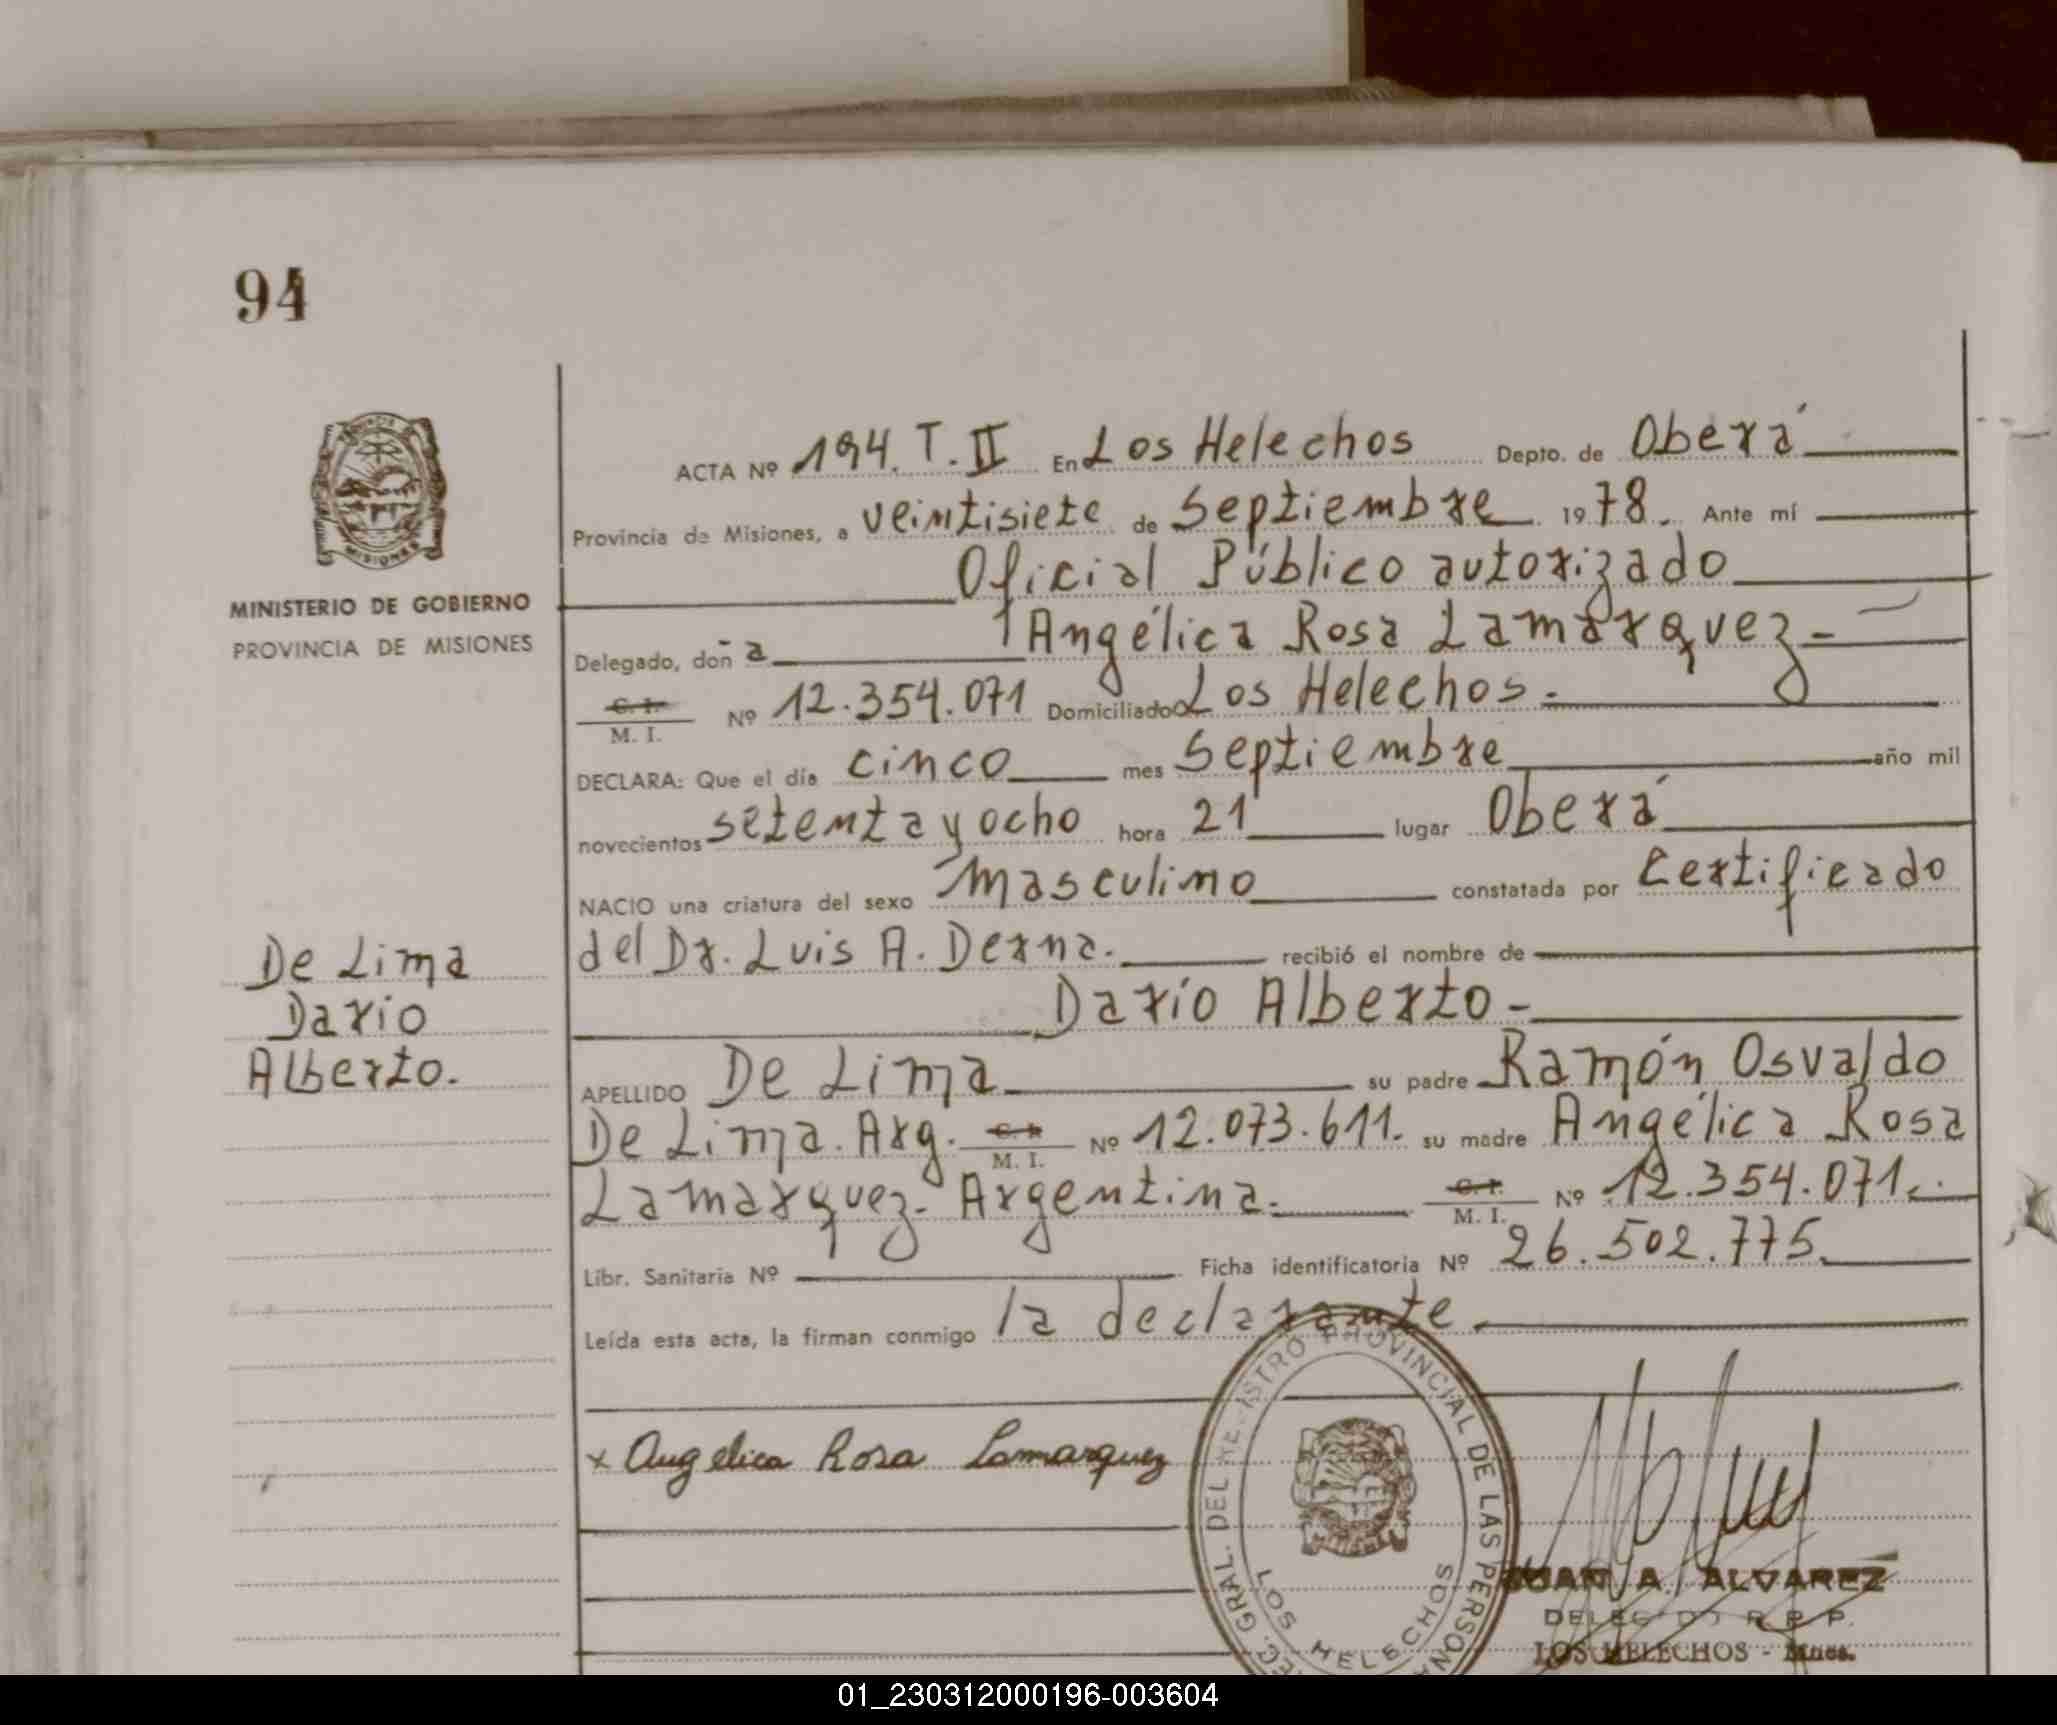 94
ACTA Nº 194. T. II En Los Helechos Depto. de Oberá
Provincia de Misiones, a veintisiete de Septiembre 1978. Ante mí
Oficial Público autorizado
MINISTERIO DE GOBIERNO
PROVINCIA DE MISIONES
Delegado, doña Angélica Rosa Lamarquez-
C. I.
M. I. Nº 12.354.071 Domiciliado Los Helechos.
DECLARA: Que el día cinco mes Septiembre año mil
novecientos setenta y ocho hora 21 lugar Oberá
NACIO una criatura del sexo Masculino constatada por Certificado
del Dr. Luis A. Derna. recibió el nombre de
Darío Alberto-
De Lima
Dario
Alberto.
APELLIDO De Lima su padre Ramón Osvaldo
De Lima. Arg. C. I. M. I. Nº 12.073.611. su madre Angélica Rosa
Lamarquez- Argentina. C. I. M. I. Nº 12.354.071.
Libr. Sanitaria Nº Ficha identificatoria Nº 26.502.775.
Leída esta acta, la firman conmigo la declarante.
x Angelica Rosa Lamarquez
GRAL. DEL REGISTRO PROVINCIAL DE LAS PERSONAS
LOS HELECHOS
JUAN A. ALVAREZ
DELEGADO R. P. P.
LOS HELECHOS - Mnes.
01_230312000196-003604